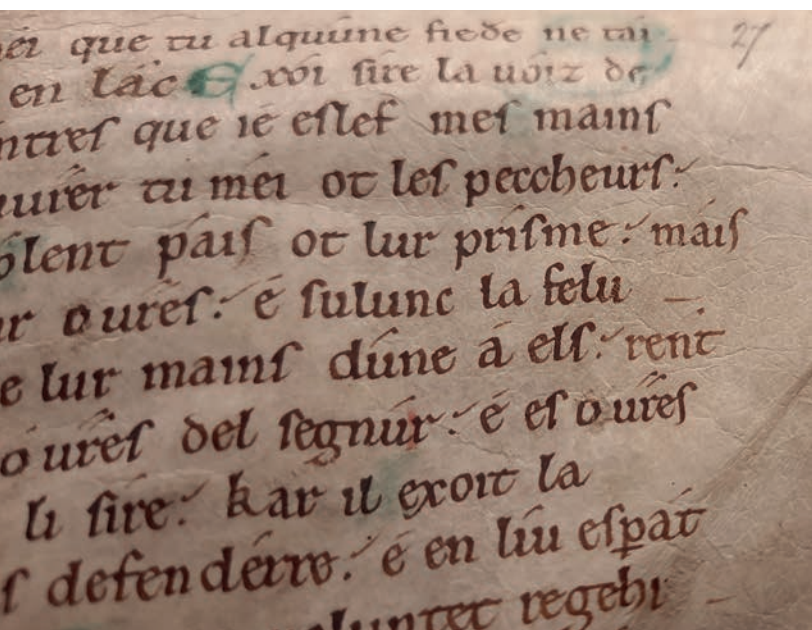 mei que tu alquune fiede ne tai 27
en lac Exoi sire la uoiz de
ntres que ié eslef mes mains
uurer tu méi ot les peccheurs:
olent páis ot lur prisme: máis
ur oures: é sulunc la felu
e lur mains dúne á els: rent
óures del segnúr: é es oures
li sire: kar il exoit la
s defendérre: é en liu esꝑat
uluntet regehi